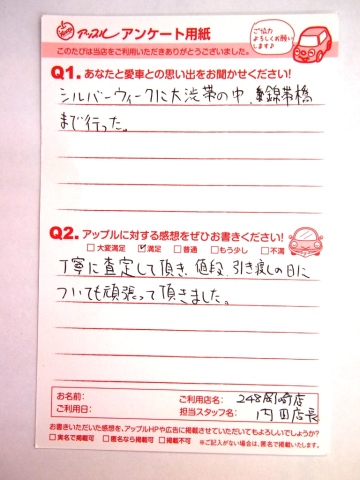 アップル アンケート用紙
ご協力
よろしくお願い
します♪
このたびは当店をご利用いただきありがとうございました。
Q1. あなたと愛車との思い出をお聞かせください!
シルバーウィークに大渋帯の中、錦帯橋
まで行った。
Q2. アップルに対する感想をぜひお書きください!
□大変満足 ☑満足 □普通 □もう少し □不満
丁寧に査定して頂き、値段、引き渡しの日に
ついても頑張って頂きました。
お名前: ご利用店名: 248岡崎店
ご利用日: 担当スタッフ名: 内田店長
お書きいただいた感想を、アップルHPや広告に掲載させていただいてもよろしいでしょうか?
□実名で掲載可 □匿名なら掲載可 □掲載不可 ※ご記入がない場合は、匿名で掲載いたします。